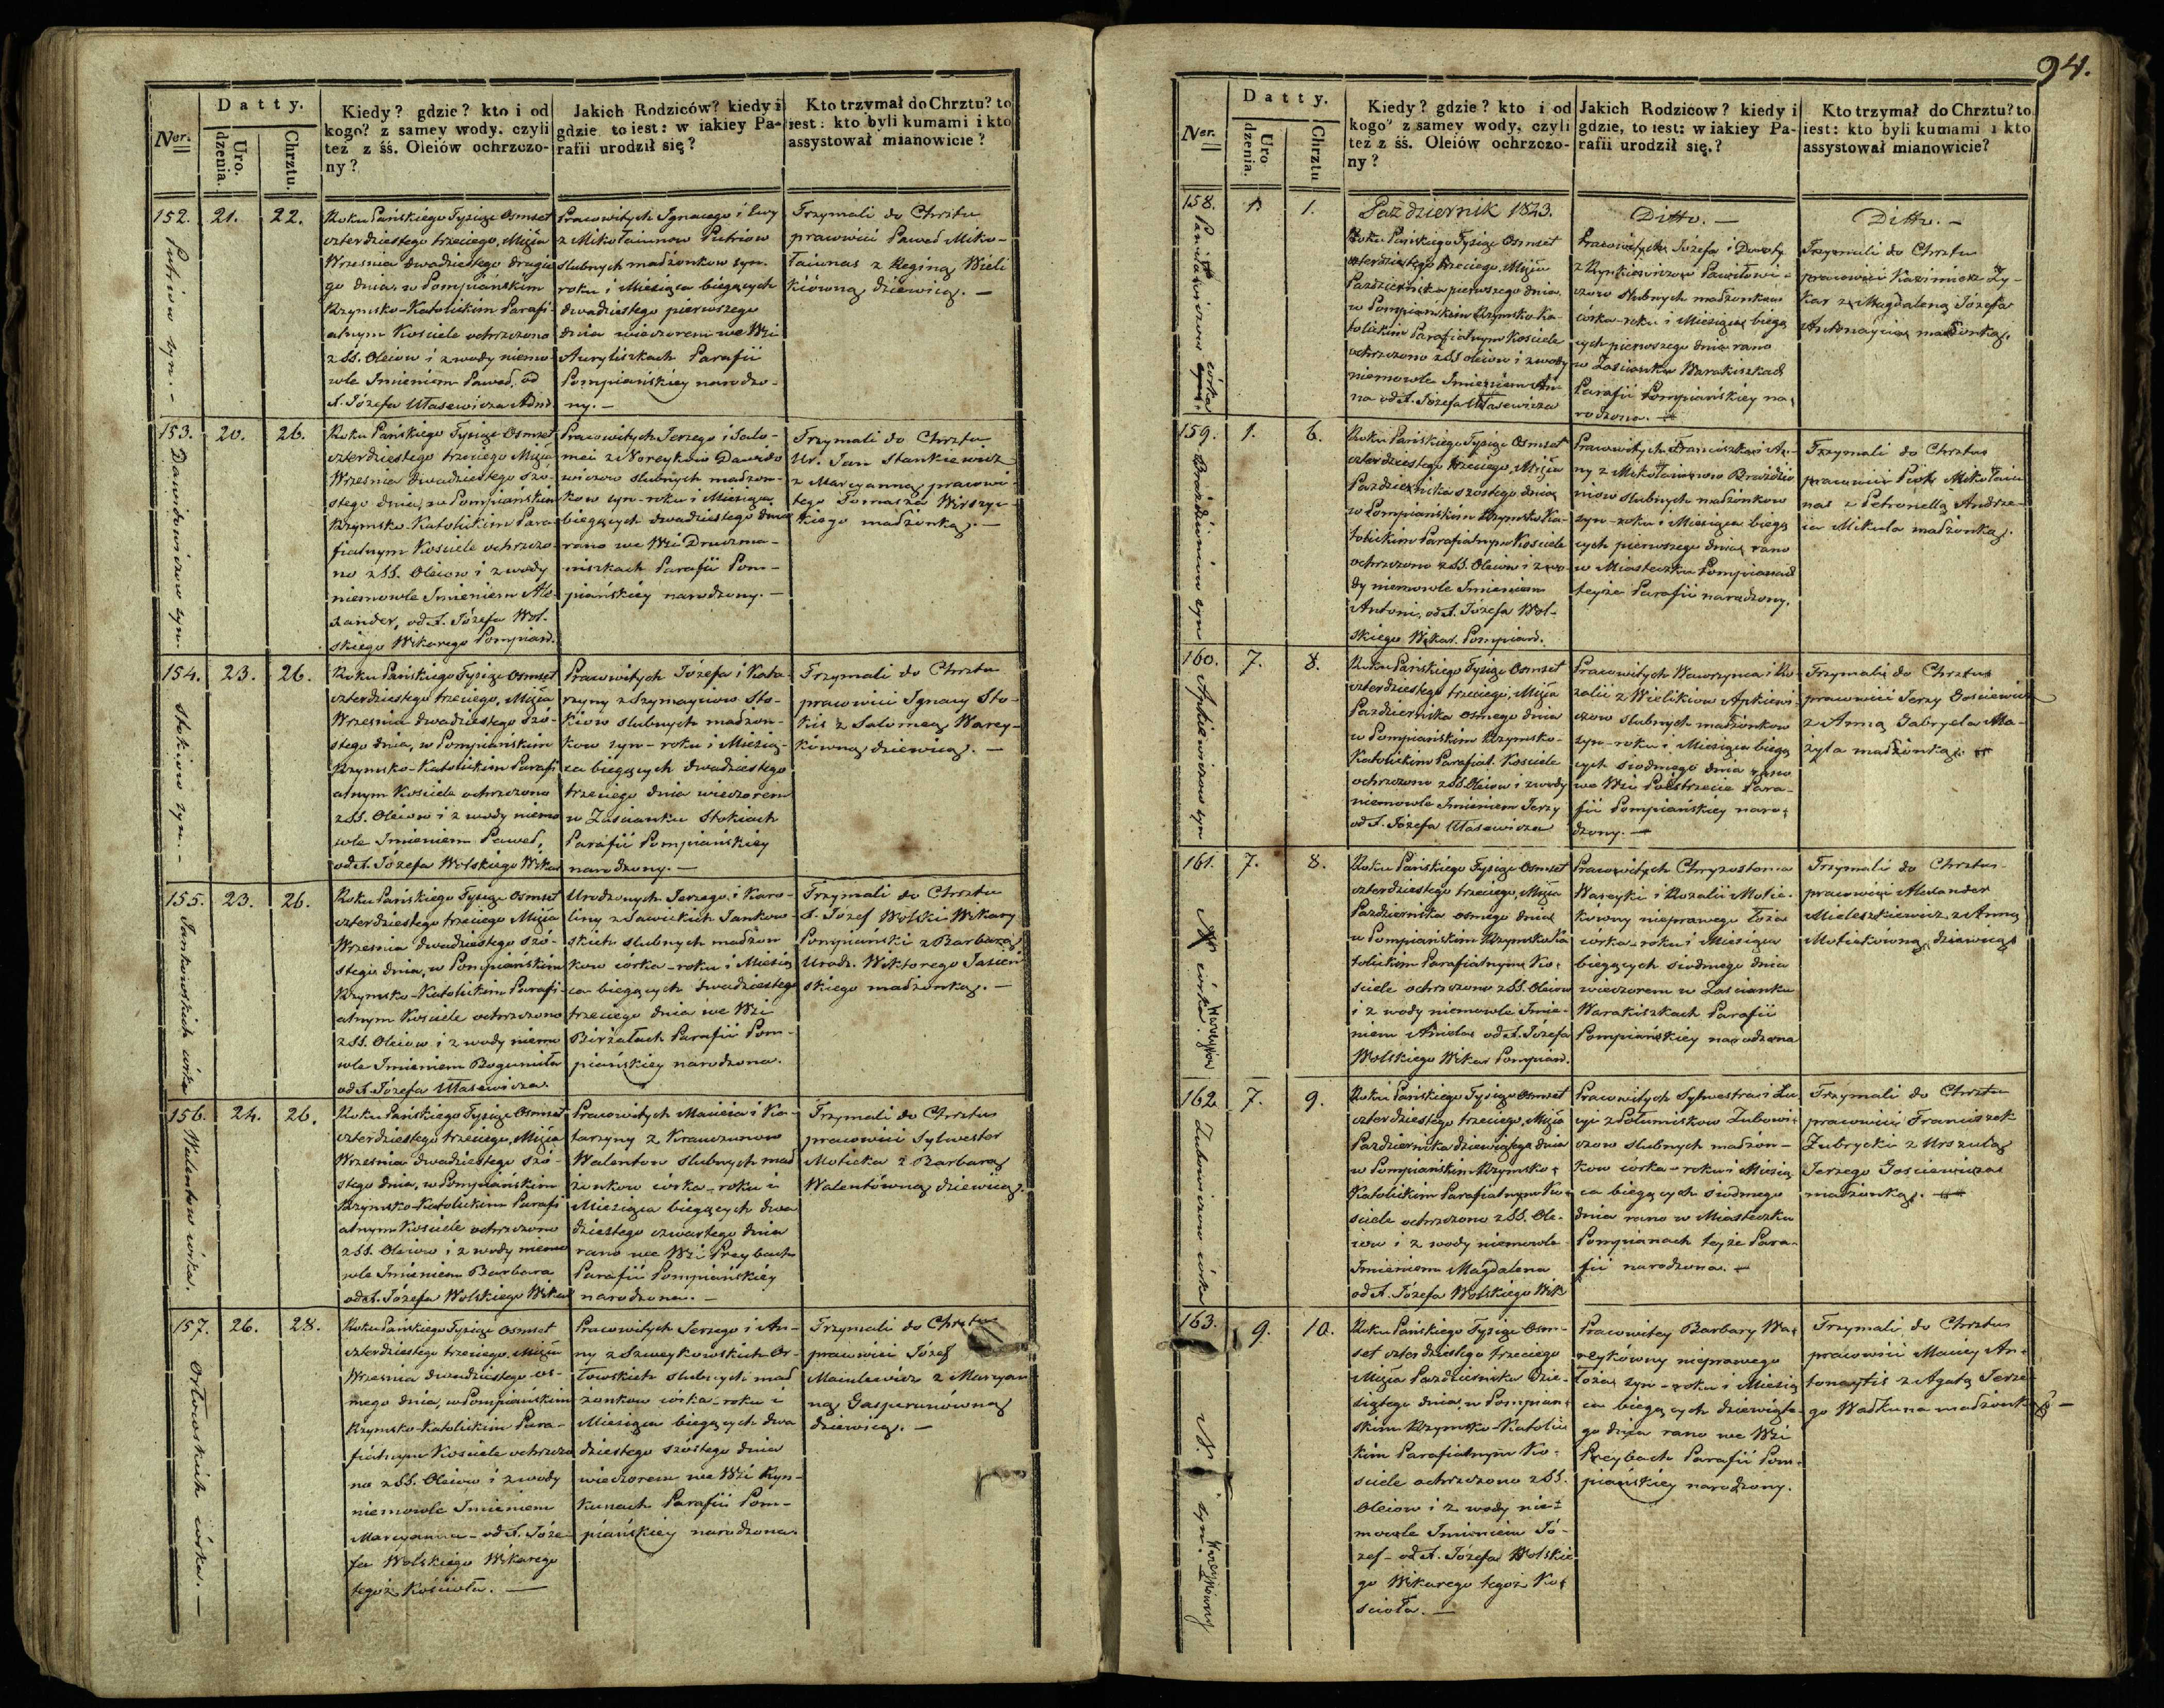 94.
Ner.
Datty.
Uro.
dzenia.
Chrztu.
Kiedy? gdzie? kto i od
kogo? z samey wody, czyli
też z śś. Oleiów ochrzczo-
ny?
Jakich Rodziców? kiedy i
gdzie to iest: w iakiey Pa-
rafii urodził się?
Kto trzymał do Chrztu? to
iest: kto byli kumami i kto
assystował mianowicie?
152. 21. 22.
Putriow syn. -
Roku Pańskiego Tysiąc Osmset
czterdziestego trzeciego, Msąca
Wrzesnia dwadziestego drugie
go dnia, w Pompiańskim
Rzymsko-Katolickim Parafi
alnym Kosciele ochrzczono
z SS. Oleiow i z wody niemo
wle Imieniem Paweł, od
X. Józefa Ułasewicza
Pracowitych Ignacego i Ewy
z Mikołaiunow Putriow
slubnych małżonkow syn.
roku i Miesiąca bieżących
dwadziestego pierwszego
dnia wieczorem we Wsi
Auryliszkach Parafii
Pompiańskiey narodzo-
ny. -
Trzymali do Chrztu
pracowici Paweł Miko-
łaiunas z Reginą Wieli
kiówną dziewicą. -
153. 20. 26.
Dawidowiczow syn.
Roku Pańskiego Tysiąc Osmset
czterdziestego trzeciego Msąca
Wrzesnia dwadziestego szó-
stego dnia, w Pompiańskim
Rzymsko-Katolickim Para-
fialnym Kosciele ochrzczo
no z SS. Oleiow i z wody
niemowle Imieniem Ale
xander, od X. Józefa Wol-
skiego Wikarego Pompian.
Pracowitych Jerzego i Salo-
mei z Noreykow Dawido
wiczow slubnych małżon-
kow syn - roku i Miesiąca
bieżących dwadziestego dnia
rano we Wsi Druzma-
niszkach Parafii Pom-
piańskiey narodzony. -
Trzymali do Chrztu
Ur. Jan Stankiewicz
z Maryanną pracowi-
tego Tomasza Wirszyc-
kiego małżonką. -
154. 23. 26.
Stokiow syn. -
Roku Pańskiego Tysiąc Osmset
czterdziestego trzeciego, Msąca
Wrzesnia dwadziestego szó-
stego dnia, w Pompiańskim
Rzymsko-Katolickim Parafi
alnym Kosciele ochrzczono
z SS. Oleiow i z wody niemo
wle Imieniem Paweł,
od X. Józefa Wolskiego Wikar
Pracowitych Józefa i Kata-
rzyny z Szymayciow Sto-
kiow slubnych małżon-
kow syn - roku i Miesią-
ca bieżących dwadziestego
trzeciego dnia wieczorem
w Zascianku Stokiach
Parafii Pompiańskiey
narodzony. -
Trzymali do Chrztu
pracowici Ignacy Sto-
kis z Salomeą Warey-
kówną dziewicą. -
155. 23. 26.
Jankowskich córka
Roku Pańskiego Tysiąc Osmset
czterdziestego trzeciego Msąca
Wrzesnia dwadziestego szó-
stego dnia, w Pompiańskim
Rzymsko-Katolickim Parafi-
alnym Kosciele ochrzczono
z SS. Oleiow i z wody niemo
wle Imieniem Bogumiła
od X. Józefa Ułasewicza.
Urodzonych Jerzego i Karo-
liny z Sawickich Jankow-
skich slubnych małżon
kow córka - roku i Miesią
ca bieżących dwadziestego
trzeciego dnia we Wsi
Birżałach Parafii Pom-
piańskiey narodzona.
Trzymali do Chrztu
X. Józef Wolski Wikary
Pompiański z Barbarą
Urodz. Wiktorego Jasień
skiego małżonką. -
156. 24. 26.
Walentow córka.
Roku Pańskiego Tysiąc Osmset
czterdziestego trzeciego, Msąca
Wrzesnia dwadziestego szó-
stego dnia, w Pompiańskim
Rzymsko-Katolickim Parafi
alnym Kosciele ochrzczono
z SS. Oleiow i z wody niemo
wle Imieniem Barbara
od X. Józefa Wolskiego Wikar
Pracowitych Macieia i Ka-
tarzyny z Krawczunow
Walentow slubnych mał
żonkow córka - roku i
Miesiąca bieżących dwa
dziestego czwartego dnia
rano we Wsi Preybach
Parafii Pompiańskiey
narodzona. -
Trzymali do Chrztu
pracowici Sylwester
Moticka z Barbarą
Walentówną dziewicą.
157. 26. 28.
Orłowskich córka. -
Roku Pańskiego Tysiąc Osmset
czterdziestego trzeciego, Msąca
Wrzesnia dwadziestego os-
mego dnia, w Pompiańskim
Rzymsko-Katolickim Para-
fialnym Kosciele ochrzczo
no z SS. Oleiow i z wody
niemowle Imieniem
Maryanna - od X. Józe-
fa Wolskiego Wikarego
tegoż Kościoła. -
Pracowitych Jerzego i An-
ny z Szweykowskich Or-
łowskich slubnych mał
żonkow córka - roku i
Miesiąca bieżących dwa
dziestego szóstego dnia
wieczorem we Wsi Kyn-
kunach Parafii Pom-
piańskiey narodzona.
Trzymali do Chrztu
pracowici Józef
Mainlewicz z Maryan
ną Gasperunówną
dziewicą. -
Ner.
Datty.
Uro
dzenia.
Chrztu
Kiedy? gdzie? kto i od
kogo? z samey wody, czyli
też z śś. Oleiów ochrzczo-
ny?
Jakich Rodziców? kiedy i
gdzie, to iest: w iakiey Pa-
rafii urodził się.?
Kto trzymał do Chrztu? to
iest: kto byli kumami i kto
assystował mianowicie?
158. 1. 1.
Pawiłowiczow córka
Październik 1843.
Roku Pańskiego Tysiąc Osmset
czterdziestego trzeciego, Msąca
Października pierwszego dnia
w Pompiańskim Rzymsko-Ka-
tolickim Parafialnym Kosciele
ochrzczono z SS oleiow i z wody
niemowle Imieniem An-
na od X. Józefa Ułasewicza
Ditto. -
Pracowitych Józefa i Doroty
z Rynkiewiczow Pawiłowi-
czow slubnych małżonkow
córka - roku i Miesiąca bieżą
cych pierwszego dnia rano
w Zascianku Warakiszkach
Parafii Pompiańskiey na-
rodzona.
Ditto. -
Trzymali do Chrztu
pracowici Kazimierz Ży-
kar z Magdaleną Józefa
Antonaycia małżonką.
159. 1. 6.
Broździuniow syn
Roku Pańskiego Tysiąc Osmset
czterdziestego trzeciego, Msąca
Października szostego dnia
w Pompiańskim Rzymsko Ka-
tolickim Parafialnym Kosciele
ochrzczono z SS. Oleiow i z wo-
dy niemowle Imieniem
Antoni, od X. Józefa Wol-
skiego Wikar. Pompian.
Pracowitych Franciszka i An-
ny z Mikołaiunow Broździu
niow slubnych małżonkow
syn - roku i Miesiąca bieżą
cych pierwszego dnia rano
w Miasteczku Pompianach
teyże Parafii narodzony.
Trzymali do Chrztu
pracowici Piotr Mikołaiu
nas z Petronellą Andrze-
ia Mikuła małżonką.
160. 7. 8.
Apkiewiczow syn
Roku Pańskiego Tysiąc Osmset
czterdziestego trzeciego, Msąca
Października osmego dnia
w Pompiańskim Rzymsko-
Katolickim Parafial. Kosciele
ochrzczono z SS. Oleiow i z wody
niemowle Imieniem Jerzy
od X. Józefa Ułasewicza
Pracowitych Wawrzynca i Ro
zalii z Wielikiow Apkiewi
czow slubnych małżonkow
syn - roku i Miesiąca bieżą
cych siodmego dnia rano
we Wsi Poistrzecie Para-
fii Pompiańskiey naro-
dzony. -
Trzymali do Chrztu
pracowici Jerzy Gosciewicz
z Anną Gabryela Ma-
żyla małżonką.
161. 7. 8.
N. córka.
Wareykow
Roku Pańskiego Tysiąc Osmset
czterdziestego trzeciego, Msąca
Października osmego dnia
w Pompiańskim Rzymsko Ka
tolickim Parafialnym Ko-
sciele ochrzczono z SS. Oleiow
i z wody niemowle Imie-
niem Aniela od X. Józefa
Wolskiego Wikar Pompian.
Pracowitych Chryzostoma
Wareyki i Rozalii Motie-
kówny nieprawego łoża
córka - roku i Miesiąca
bieżących siodmego dnia
wieczorem w Zascianku
Warakiszkach Parafii
Pompiańskiey narodzona
Trzymali do Chrztu
pracowici Alexander
Mieleszkiewicz z Anną
Motiekówną dziewicą
162 7. 9.
Zubowiczow córka
Roku Pańskiego Tysiąc Osmset
czterdziestego trzeciego, Msąca
Października dziewiątego dnia
w Pompiańskim Rzymsko-
Katolickim Parafialnym Ko-
sciele ochrzczono z SS. Ole-
iow i z wody niemowle
Imieniem Magdalena
od X. Józefa Wolskiego Wik
Pracowitych Sylwestra i Łu
cyi z Połumiskow Zubowi-
czow slubnych małżon-
kow córka - roku i Miesią
ca bieżących siodmego
dnia rano w Miasteczku
Pompianach teyże Para-
fii narodzona. -
Trzymali do Chrztu
pracowici Franciszek
Zubrycki z Urszulą
Jerzego Gosciewicza
małżonką. -
163. 9. 10.
N. syn. -
Wareykówny
Roku Pańskiego Tysiąc Osm-
set czterdziestego trzeciego
Msąca Października dzie-
siątego dnia, w Pompiań-
skim Rzymsko-Katolic
kim Parafialnym Ko-
sciele ochrzczono z SS.
Oleiow i z wody nie-
mowle Imieniem Jó-
zef - od X. Józefa Wolskie
go Wikarego tegoż Ko-
scioła. -
Pracowitey Barbary Wa-
reykówny nieprawego
łoża syn - roku i Miesią
ca bieżących dziewiąte-
go dnia rano we Wsi
Preybach Parafii Pom-
piańskiey narodzony.
Trzymali do Chrztu
pracowici Maciey An-
tonaytis z Agatą Jerze-
go Wałkuna małżonką -